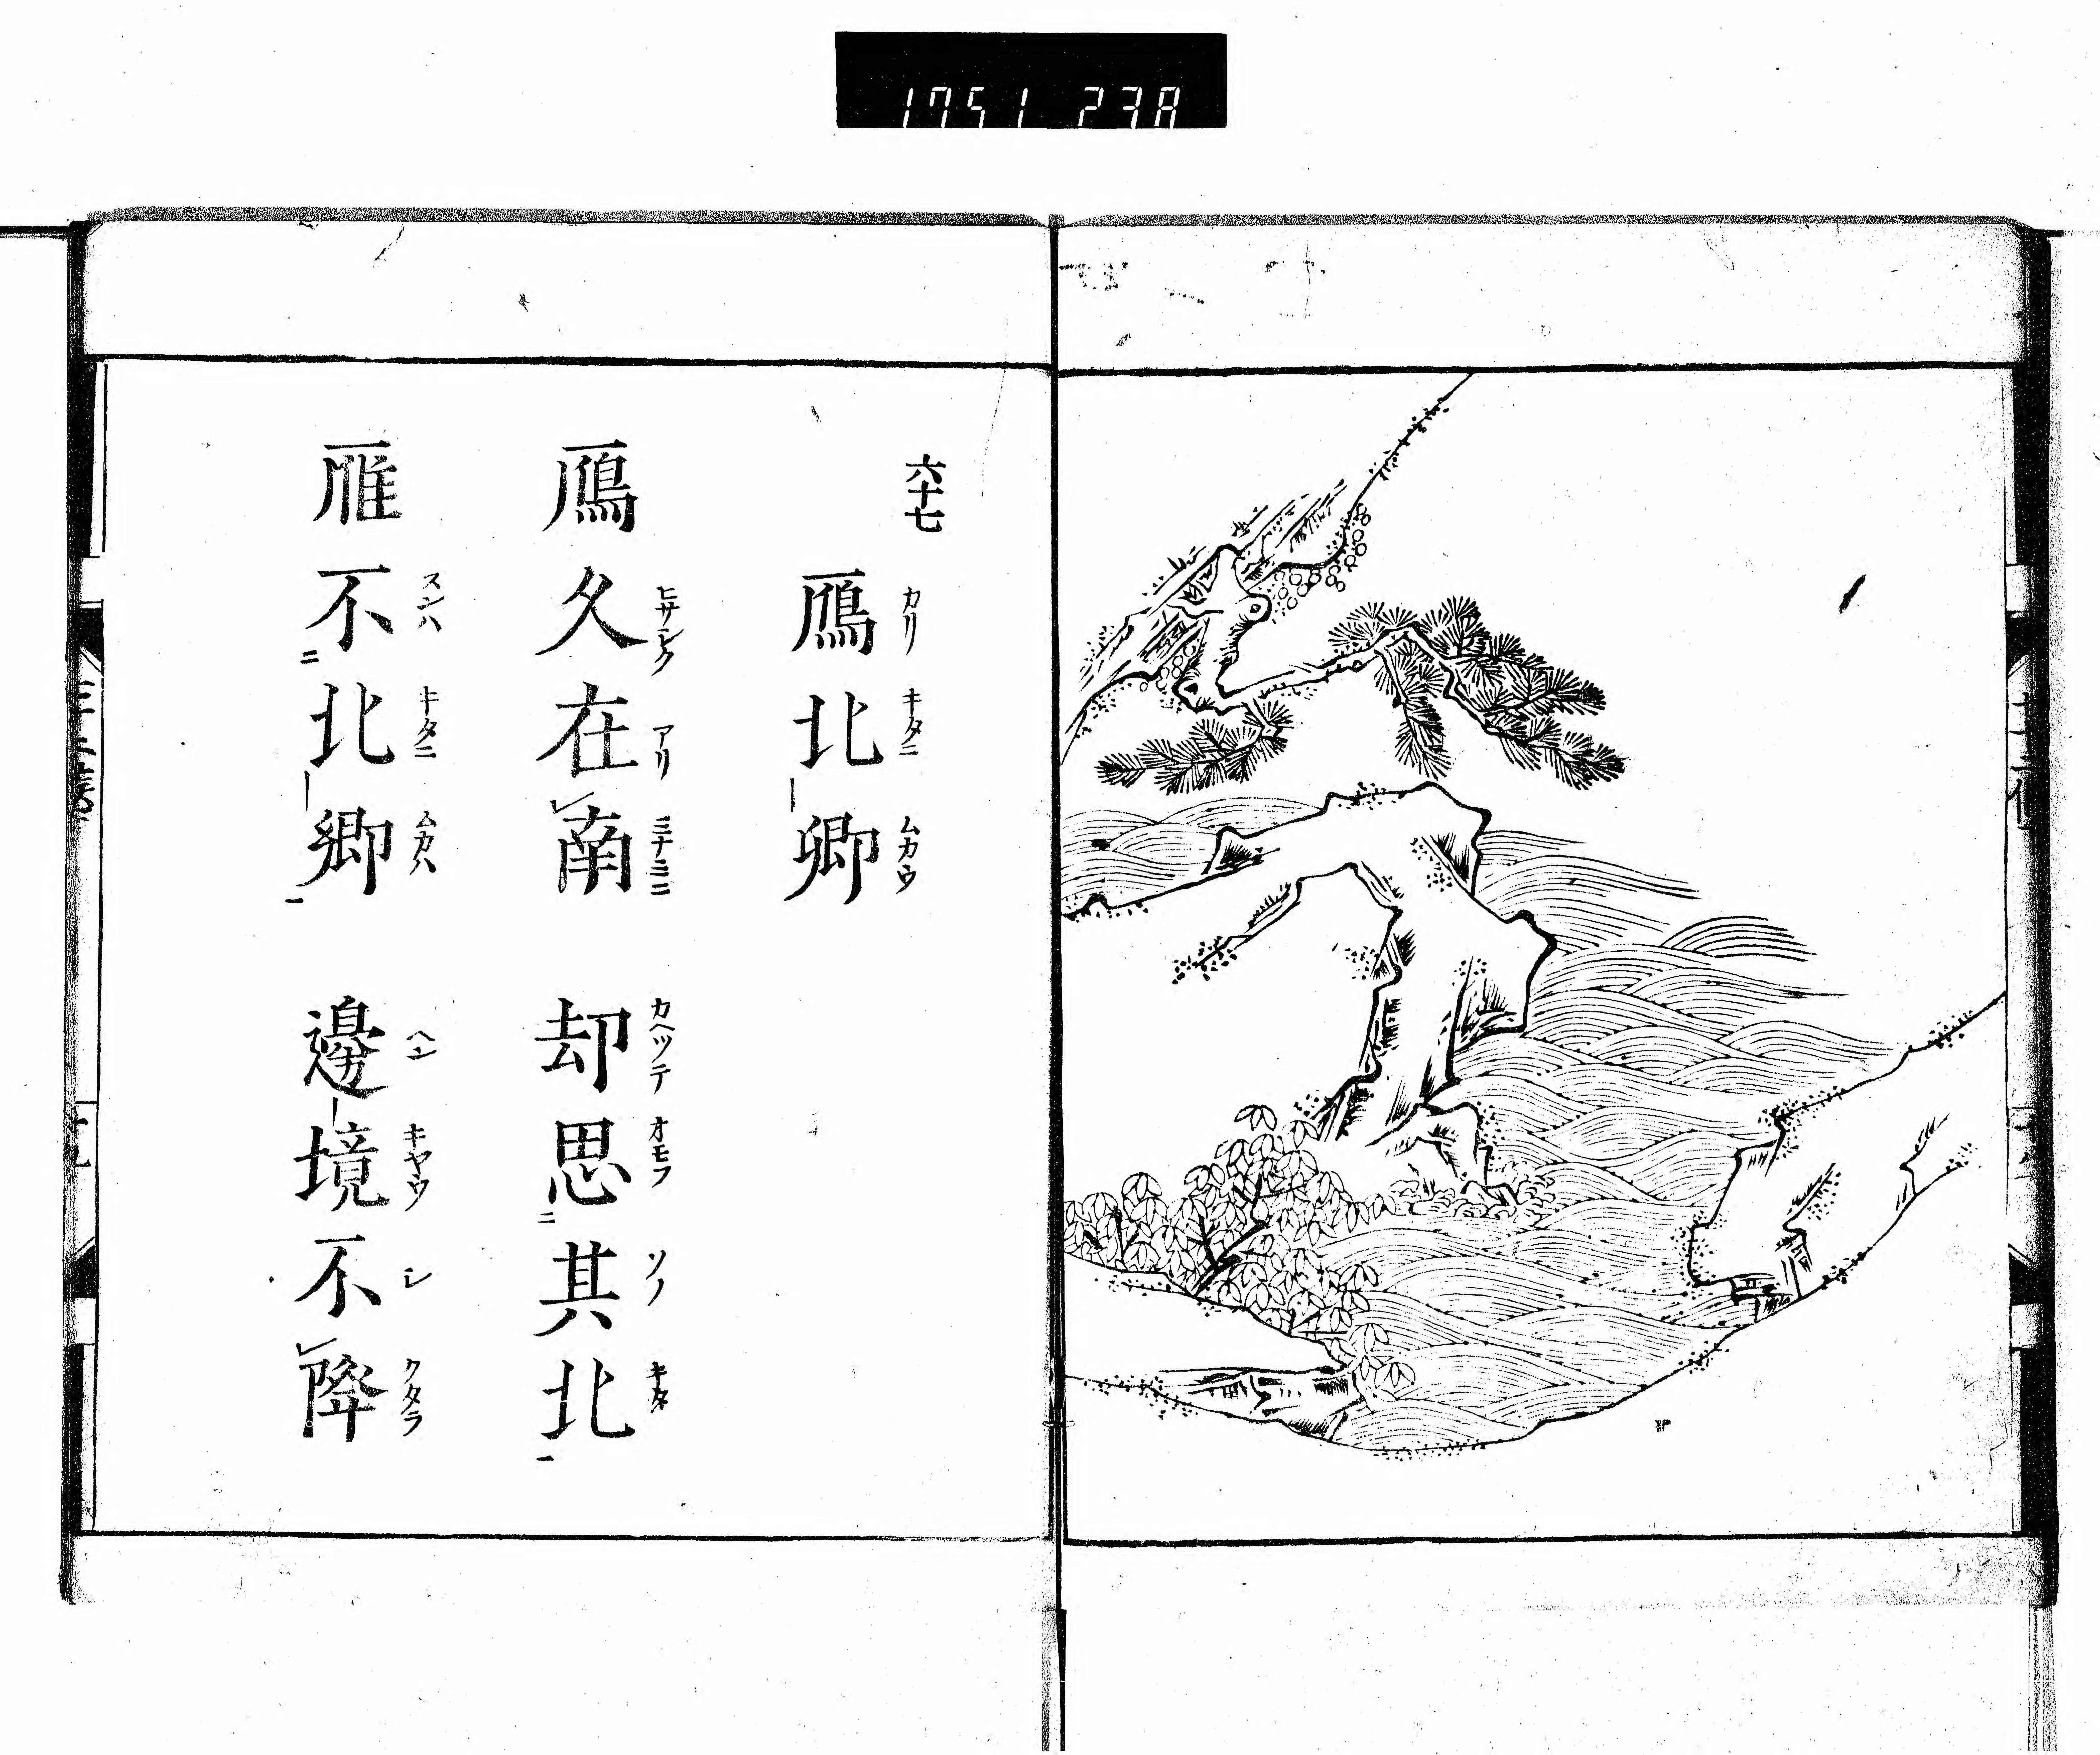 1751 238
六十七
カリ キタニ ムカウ
鴈北卿
ヒサシク アリ ミナミニ カヘツテ オモフ ソノ キタ
鴈久在レ南 却思二其北一
スンハ キタニ ムカハ ヘン キヤウ シ クタラ
雁不二北卿一 邊境不レ降